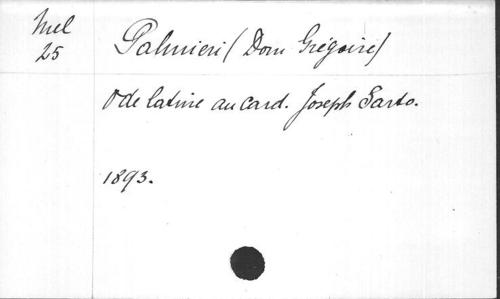 Mel
25
Palmieri (Dom Grégoire)
Ode latine au card. Joseph Sarto.
1893.